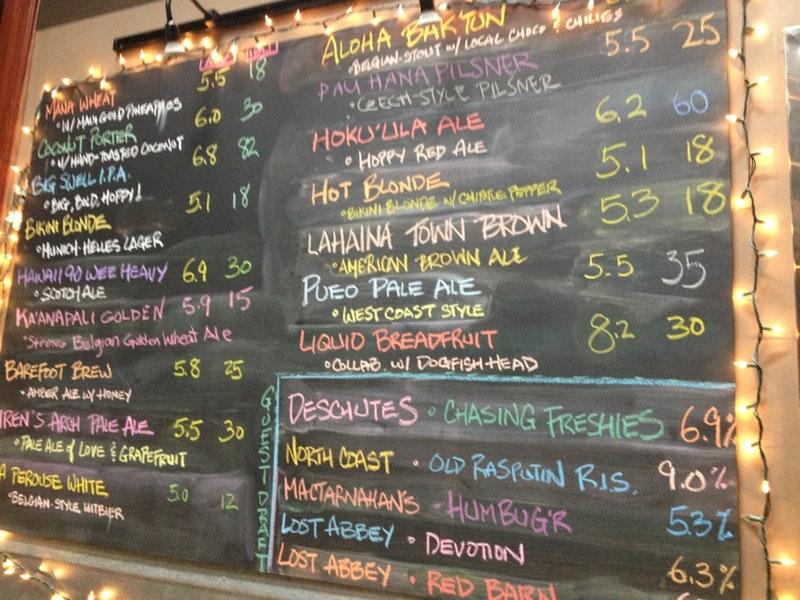 MANA WHEAT 5.5 18
• W/ MAUI GOLD PINEAPPLES
COCONUT PORTER 6.0 30
• W/ HAND-TOASTED COCONUT
BIG SWELL I.P.A. 6.8 82
• BIG, BOLD, HOPPY!
BIKINI BLONDE 5.1 18
• MUNICH-HELLES LAGER
HAWAII 90 WEE HEAVY 6.9 30
• SCOTCH ALE
KA'ANAPALI GOLDEN 5.9 15
• Strong Belgian Golden Wheat Ale
BAREFOOT BREW 5.8 25
• AMBER ALE W/ HONEY
IREN'S ARCH PALE ALE 5.5 30
• PALE ALE of LOVE & GRAPEFRUIT
A PEROUSE WHITE 5.0 12
• BELGIAN-STYLE WITBIER
ALOHA BAKTUN
• BELGIAN-STOUT W/ LOCAL CHOCO & CHILIES
PAU HANA PILSNER 5.5 25
• CZECH-STYLE PILSNER
HOKU'ULA ALE 6.2 60
• HOPPY RED ALE
HOT BLONDE 5.1 18
• BIKINI BLONDE W/ CHIPOTLE PEPPER
LAHAINA TOWN BROWN 5.3 18
• AMERICAN BROWN ALE
PUEO PALE ALE 5.5 35
• WEST COAST STYLE
LIQUID BREADFRUIT 8.2 30
• COLLAB. W/ DOGFISH-HEAD
GUEST DRAFT
DESCHUTES • CHASING FRESHIES 6.9%
NORTH COAST • OLD RASPUTIN R.I.S. 9.0%
MACTARNAHAN'S - HUMBUG'R 5.3%
LOST ABBEY • DEVOTION 6.3%
LOST ABBEY • RED BARN